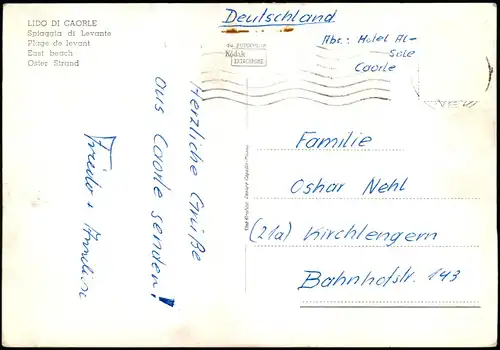 LIDO DI CAORLE
Spiaggia di Levante
Plage de levant
East beach
Oster Strand
Deutschland
Abs.: Hotel Al-
Sole
Caorle
Kodak
EKTACHROME
Herzliche Grüße
aus Caorle senden!
Familie
Oskar Nehl
(21a) Kirchlengern
Bahnhofstr. 143